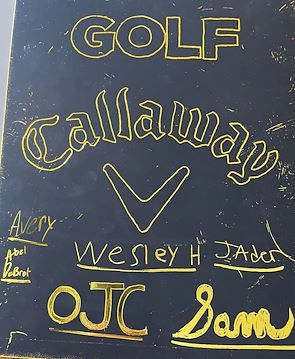 GOLF
Callaway
Avery
Abel
DeBrot
Wesley H
JAden
OJC
Sam